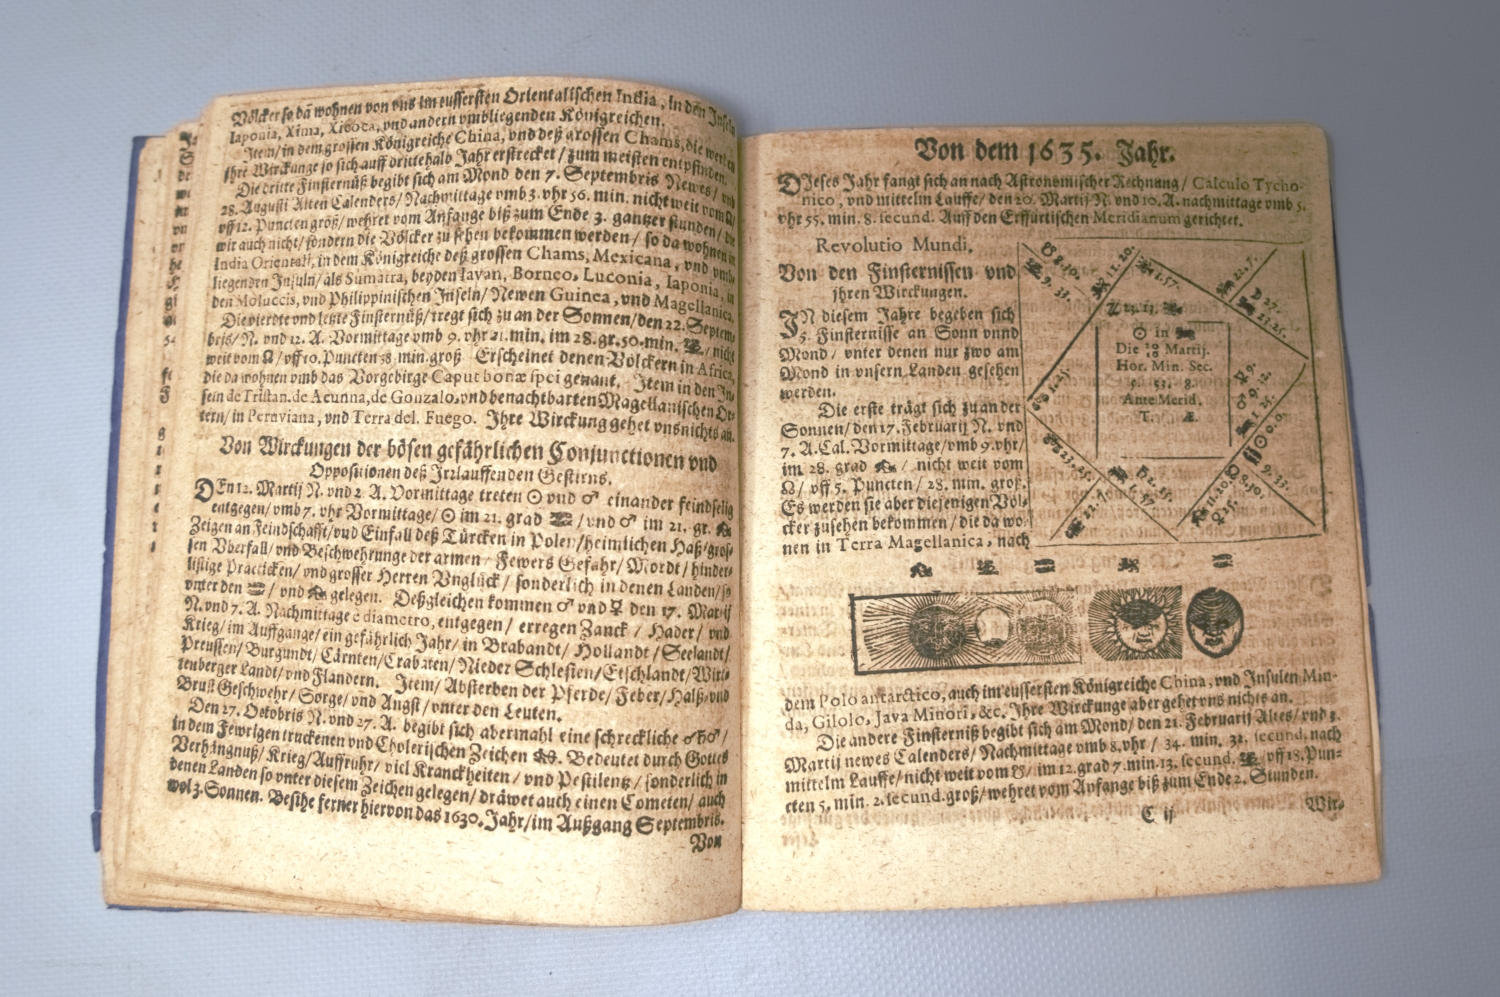 Völcker so dā wohnen von vns im eussersten Orientalischen India, in den Inseln
Iaponia, Xima, Xicoca, vnd andern vmbliegenden Königreichen.
Item/ in dem grossen Königreiche China, vnd deß grossen Chams, die werden
ihre Wirckunge so sich auff drittehalb Jahr erstrecket/ zum meisten entpfinden.
Die dritte Finsternüß begibt sich am Mond den 7. Septembris Newes/ vnd
28. Augusti Alten Calenders/ Nachmittage vmb 3. vhr 56. min. nicht weit vom ☊/
vff 12. Puncten größ/ wehret vom Anfange biß zum Ende 3. gantzer stunden/ die
wir auch nicht/ sondern die Völcker zu sehen bekommen werden/ so da wohnen in
India Orientali, in dem Königreiche deß grossen Chams, Mexicana, vnd vmb-
liegenden Insuln/ als Sumatra, beyden Iavan, Borneo, Luconia, Iaponia, in
den Moluccis, vnd Philippinischen Inseln/ Newen Guinea, vnd Magellanica.
Die vierdte vnd letzte Finsternüß/ tregt sich zu an der Sonnen/ den 22. Septem-
bris/ N. vnd 12. A. Vormittage vmb 9. vhr 21. min. im 28. gr. 50. min. ♍/ nicht
weit vom ☊/ vff 10. Puncten 58 min. groß Erscheinet denen Völckern in Africa,
die da wohnen vmb das Vorgebirge Caput bonæ spei genant. Item in den In-
seln de Tristan. de Acunna, de Gonzalo, vnd benachtbarten Magellanischen Or-
tern/ in Peruviana, vnd Terra del. Fuego. Ihre Wirckung gehet vns nichts an.
Von Wirckungen der bösen gefährlichen Conjunctionen vnd
Oppositionen deß Irzlauffenden Gestirns.
DEn 12. Martij N. vnd 2. A. Vormittage treten ☉ vnd ♂ einander feindselig
entgegen/ vmb 7. vhr Vormittage/ ☉ im 21. grad ♓/ vnd ♂ im 21. gr. ♍
Zeigen an Feindschafft/ vnd Einfall deß Türcken in Polen/ heimlichen Haß/ gros-
sen Vberfall/ vnd Beschwehrunge der armen/ Fewers Gefahr/ Mordt/ hinder-
listige Practicken/ vnd grosser Herren Vnglück/ sonderlich in denen Landen/ so
vnter den ♓/ vnd ♍ gelegen. Deßgleichen kommen ♂ vnd ♀ den 17. Martij
N. vnd 7. A. Nachmittage è diametro, entgegen/ erregen Zanck/ Hader/ vnd
Krieg/ im Auffgange/ ein gefährlich Jahr/ in Brabandt/ Hollandt/ Seelandt/
Preussen/ Burgundt/ Cärnten/ Crabaten/ Nieder Schlesien/ Etschlandt/ Wirt-
tenberger Landt/ vnd Flandern. Item/ Absterben der Pferde/ Feber/ Halß/ vnd
Brust Geschwehr/ Sorge/ vnd Angst/ vnter den Leuten.
Den 27. Octobris N. vnd 27. A. begibt sich abermahl eine schreckliche ☌ ♄ ♂/
in dem Fewrigen truckenen vnd Cholerischen Zeichen ♐. Bedeutet durch Gottes
Verhängnuß/ Krieg/ Auffruhr/ viel Kranckheiten/ vnd Pestilentz/ sonderlich in
denen Landen so vnter diesem Zeichen gelegen/ dräwet auch einen Cometen/ auch
wol 3. Sonnen. Besihe ferner hiervon das 1630. Jahr/ im Außgang Septembris.
Von
Von dem 1635. Jahr.
DIeses Jahr fangt sich an nach Astronomischer Rechnung/ Calculo Tycho-
nico, vnd mittelm Lauffe/ den 20. Martij N. vnd 10. A. nachmittage vmb 5.
vhr 55. min. 8. secund. Auff den Erffurtischen Meridianum gerichtet.
Revolutio Mundi.
Von den Finsternissen vnd
jhren Wirckungen.
IN diesem Jahre begeben sich
5. Finsternisse an Sonn vnnd
Mond/ vnter denen nur zwo am
Mond in vnsern Landen gesehen
werden.
Die erste trägt sich zu an der
Sonnen/ den 17. Februarij N. vnd
7. A. Cal. Vormittage/ vmb 9. vhr/
im 28. grad ♒/ nicht weit vom
☊/ vff 5. Puncten/ 28. min. groß.
Es werden sie aber diejenigen Völ-
cker zusehen bekommen/ die da wo-
nen in Terra Magellanica, nach
☉ in ♈
Die 20/10 Martij.
Hor. Min. Sec.
5. 53. 8.
Ante Merid.
T. Æ.
dem Polo antarctico, auch im eussersten Königreiche China, vnd Insulen Min-
da, Gilolo, Java Minori, &c. Ihre Wirckunge aber gehet vns nichts an.
Die andere Finsterniß begibt sich am Mond/ den 21. Februarij Altes/ vnd 3.
Martij newes Calenders/ Nachmittage vmb 8. vhr/ 34. min. 32. secund. nach
mittelm Lauffe/ nicht weit vom ☋/ im 12. grad 7. min. 13. secund. ♍/ vff 18. Pun-
cten 5. min. 2. secund. groß/ wehret vom Anfange biß zum Ende 2. Stunden.
C ij Wir-